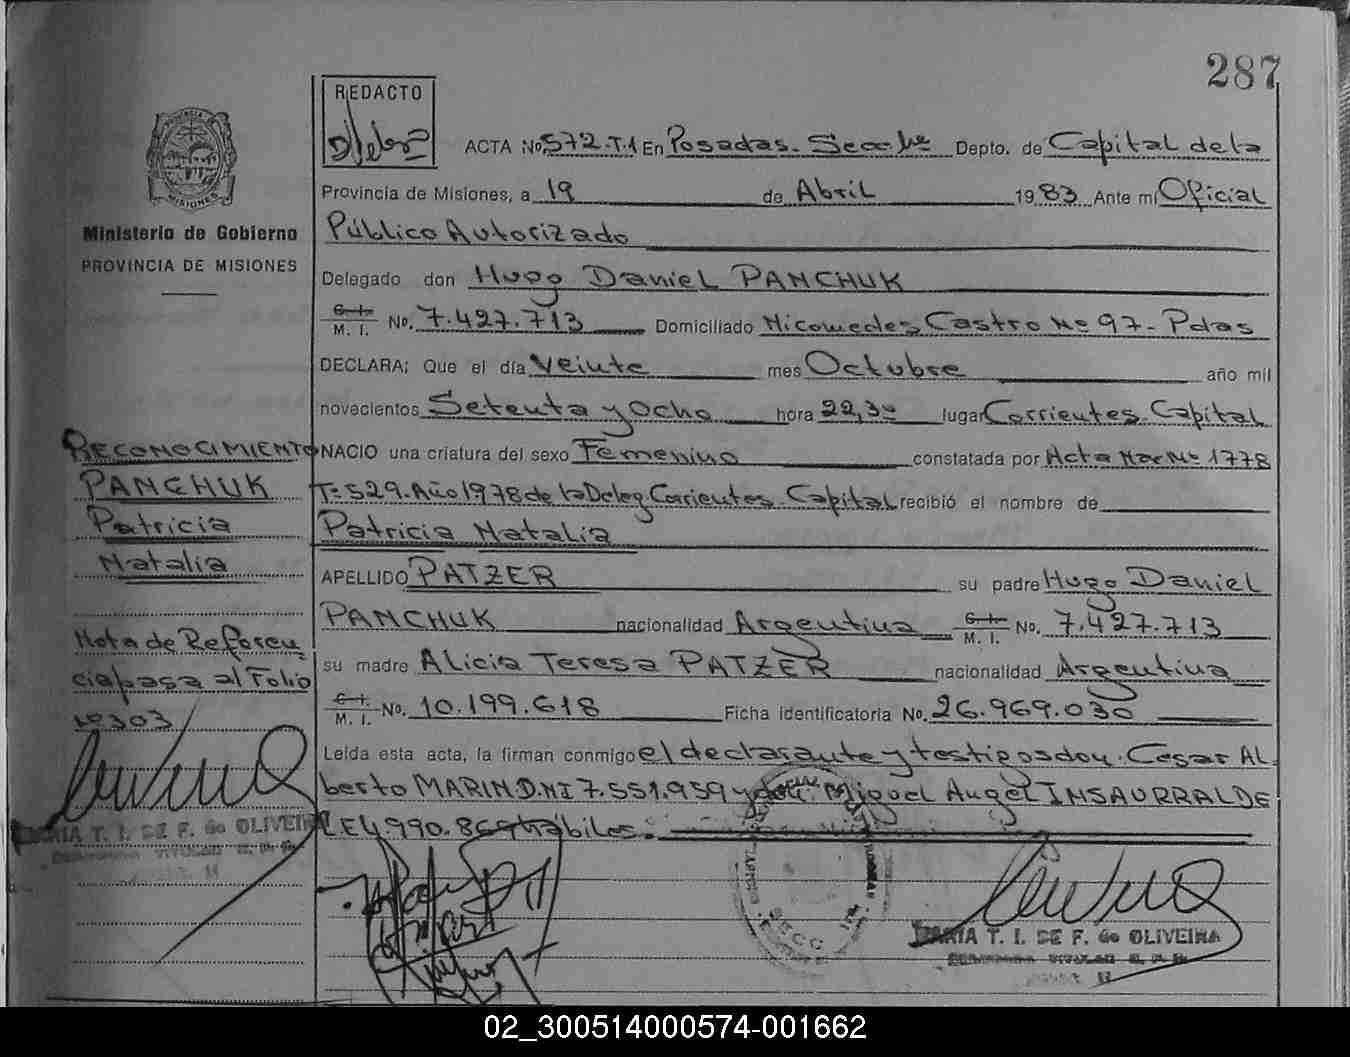 287
REDACTO
ACTA No. 572-T.1 En Posadas. Secc. Depto. de Capital de la
Provincia de Misiones, a 19 de Abril 1983 Ante mí Oficial
Público Autorizado
Ministerio de Gobierno
PROVINCIA DE MISIONES
Delegado don Hugo Daniel PANCHUK
C. I.
M. I. No. 7.427.713 Domiciliado Nicomedes Castro Nº 97 - Pdas
DECLARA; Que el día Veinte mes Octubre año mil
novecientos Setenta y Ocho hora 22,30 lugar Corrientes. Capital
RECONOCIMIENTO
NACIO una criatura del sexo Femenino constatada por Acta Nac Nº 1778
PANCHUK
Tº 529. Año 1978 de la Deleg. Corrientes. Capital recibió el nombre de
Patricia
Patricia Natalia
Natalia
APELLIDO PATZER su padre Hugo Daniel
PANCHUK nacionalidad Argentina C. I.
M. I. No. 7.427.713
Nota de Referen
su madre Alicia Teresa PATZER nacionalidad Argentina
cia pasa al Folio
Nº 303
C. I.
M. I. No. 10.199.618 Ficha identificatoria No. 26.969.030
Leída esta acta, la firman conmigo el declarante y testigos don. Cesar Al
berto MARIN D.NI 7.551.959 y don. Miguel Angel INSAURRALDE
LE 4.990. hábiles.
MARIA T. I. DE F. de OLIVEIRA
MARIA T. I. DE F. de OLIVEIRA
02_300514000574-001662